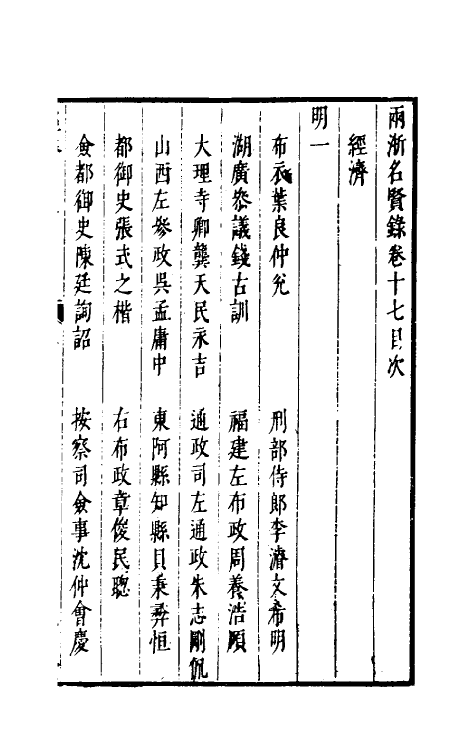 兩浙名賢錄卷十七目次
經濟
明一
布衣葉良仲兊　刑部侍郎李濬文希明
湖廣叅議錢古訓　福建左布政周養浩頤
大理寺卿龔天民永吉　通政司左通政朱志剛侃
山西左參政吳孟庸中　東阿縣知縣貝秉彛恒
都御史張式之楷　右布政章俊民聰
僉都御史陳廷詢詔　按察司僉事沈仲會慶